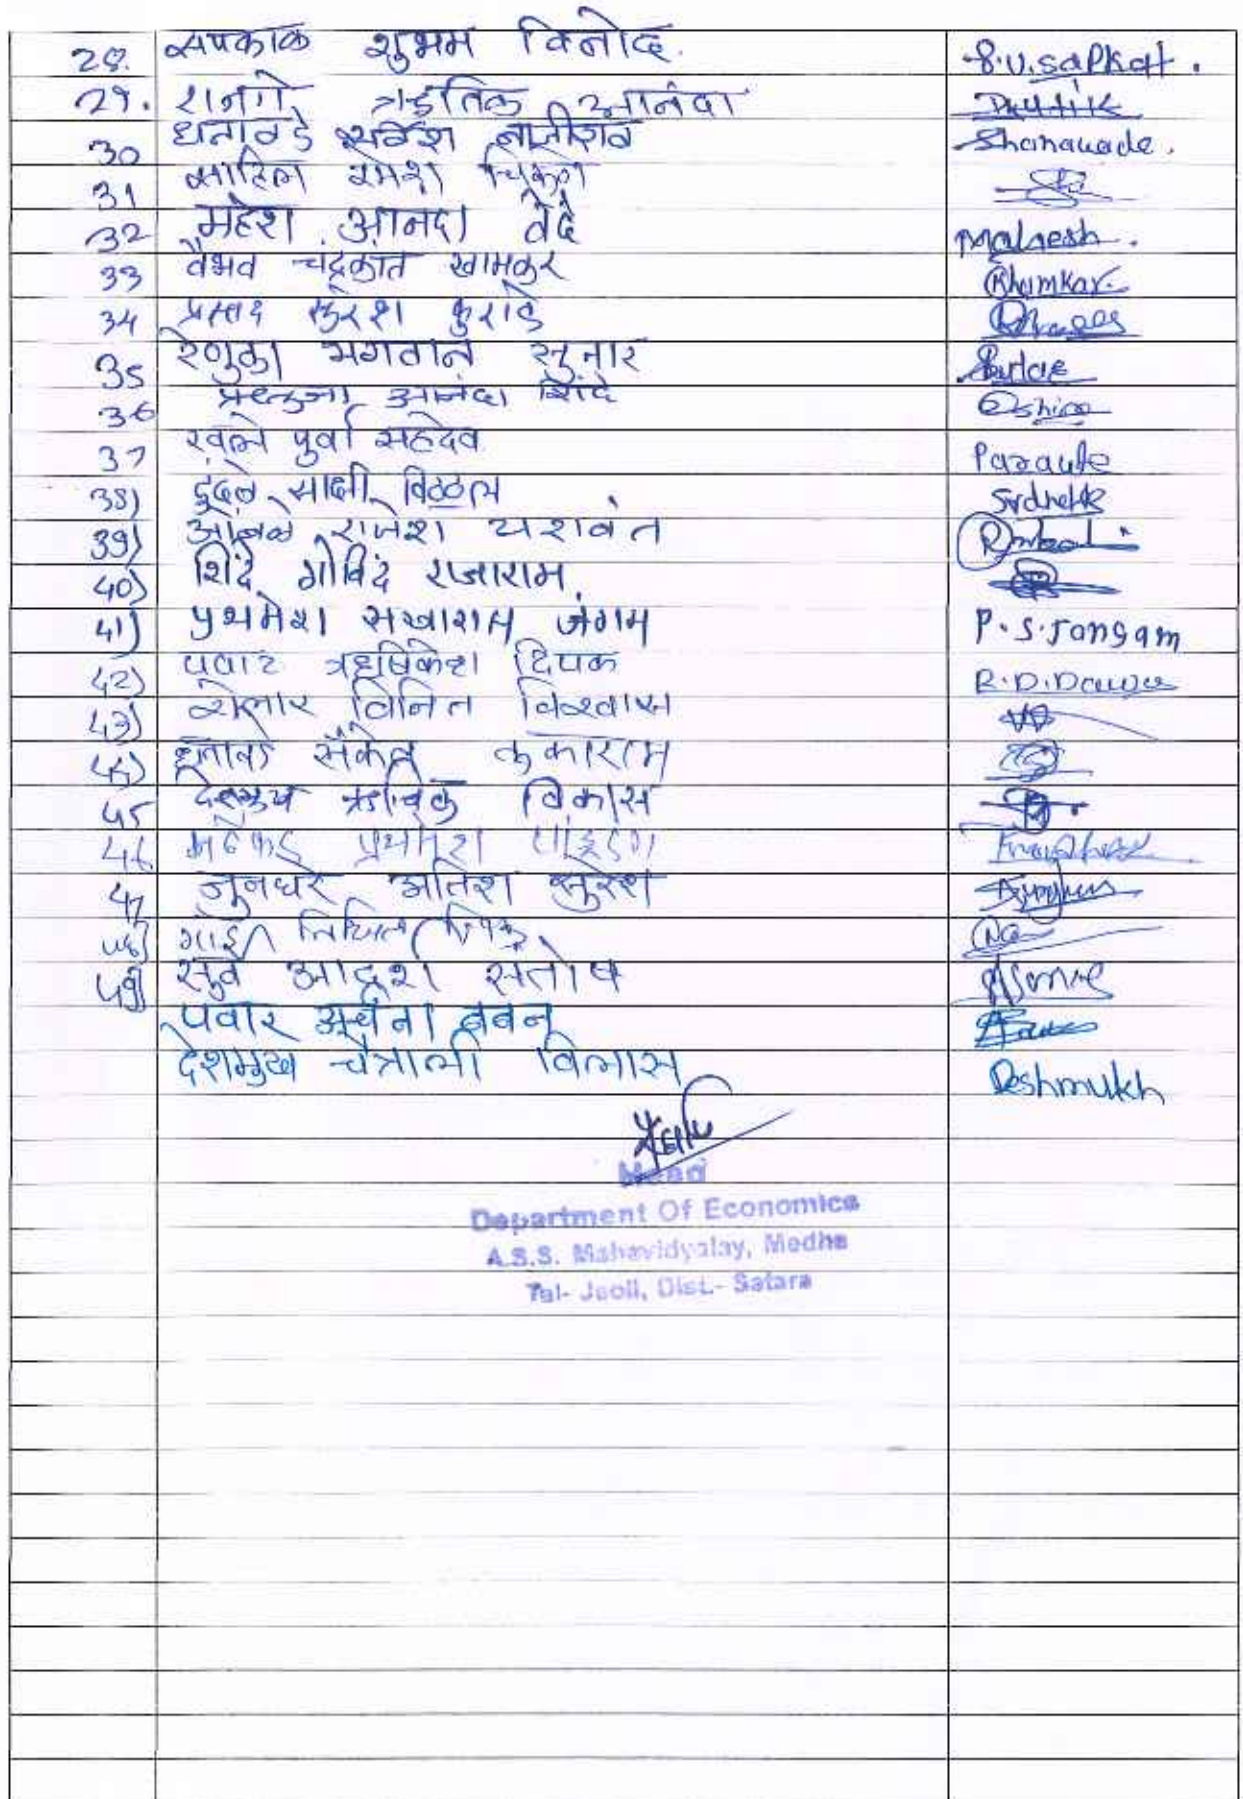 28. सपकाळ शुभम विनोद. S.V.Sapkal.
29. रांजणे ऋतिक आनंदा
30 धनावडे सर्वेश बाजीराव Shanawade.
31 साहिल रमेश चिकणे
32 महेश आनंदा वेंदे Mahesh.
33 वैभव चंद्रकांत खामकर Khamkar.
34 प्रसाद सुरेश कुराडे
35 रेणुका भगवान सुतार Sutar
36 आनंदा शिंदे
37 पुर्वा सहदेव
38) साक्षी विठ्ठल
39) आंबळे राजेश यशवंत
40) शिंदे गोविंद राजाराम.
41) प्रथमेश सखाराम जंगम P.S.Jangam
42) पवार ऋषिकेश दिपक R.D.Pawar
43) शेलार विनित विश्वास
44) धनावडे संकेत तुकाराम
45 देशमुख ऋत्विक विकास
46 प्रथमेश पांडुरंग
47 जुनघरे अतिश सुरेश
48) निखिल
49) सुर्वे आदर्श संतोष
पवार अर्चना बबन
देशमुख चैत्राली विलास Deshmukh
Head
Department Of Economics
A.S.S. Mahavidyalay, Medha
Tal- Jaoli, Dist.- Satara